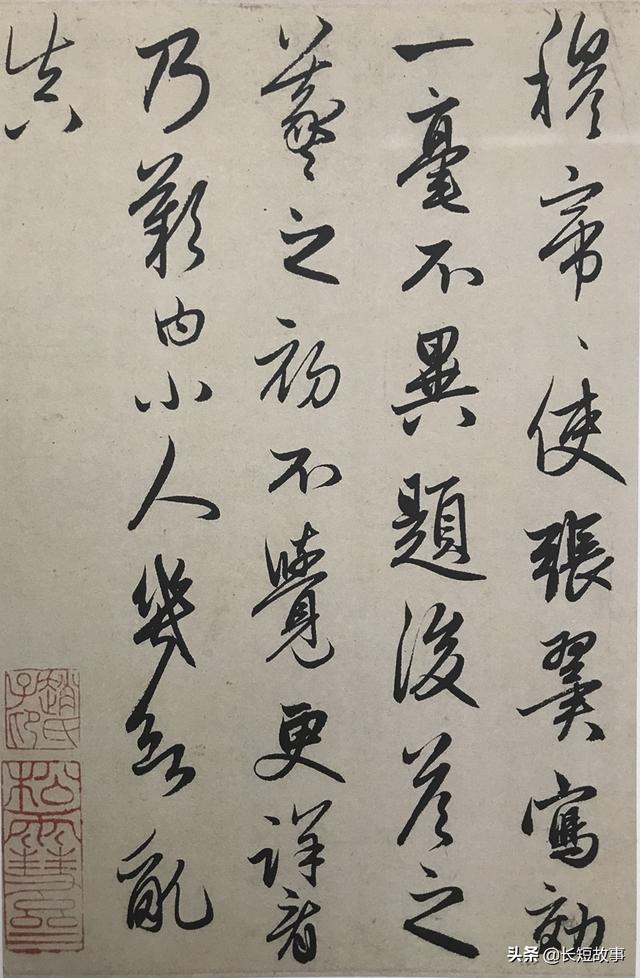 穆帝、使張翼寫効
一毫不異題後答之
羲之初不覺更詳看
乃歎曰小人幾欲亂
真
趙氏子昂
松雪齋
头条 @长短故事